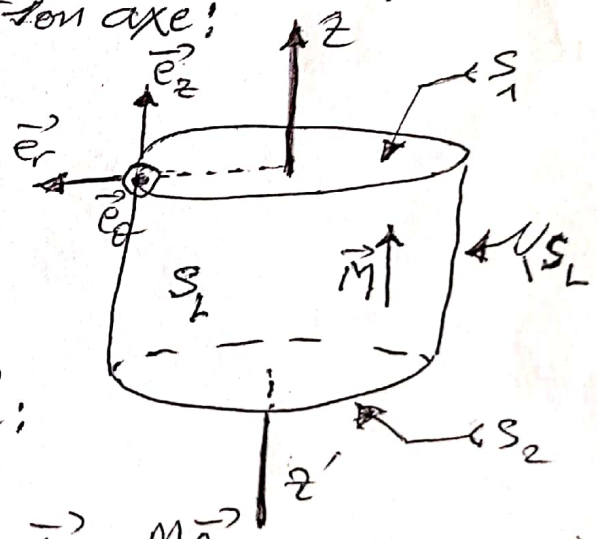 son axe:
z
e⃗_z
S_1
e⃗_r
e⃗_θ
S_L
M⃗
S_L
:
S_2
z'